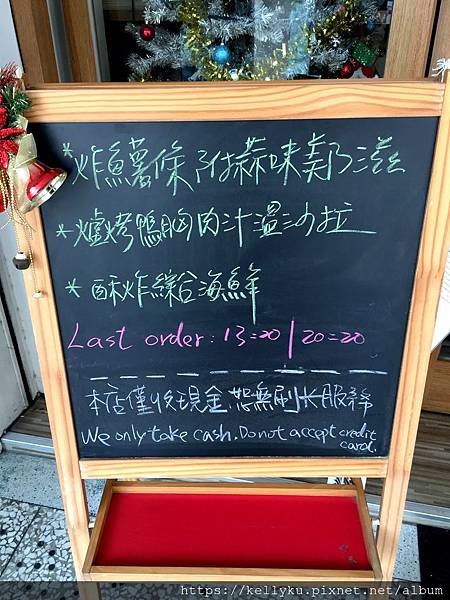 *炸魚薯條附蒜味美乃滋
*爐烤鴨胸肉汁溫沙拉
*酥炸綜合海鮮
Last order: 13:20 | 20:20
本店僅收現金 恕無刷卡服務
We only take cash. Do not accept credit card.
https://kellyku.pixnet.net/album